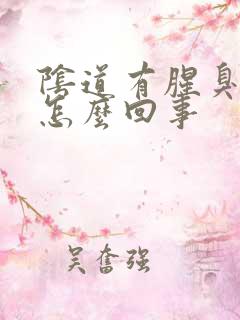 陰道有腥臭
怎麽回事
吴奮强